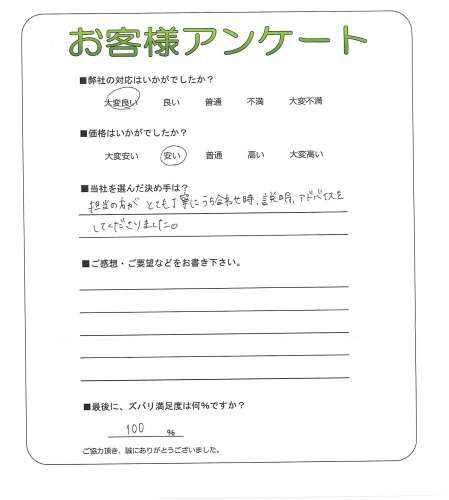 お客様アンケート
■弊社の対応はいかがでしたか？
大変良い 良い 普通 不満 大変不満
■価格はいかがでしたか？
大変安い 安い 普通 高い 大変高い
■当社を選んだ決め手は？
担当の方が とても丁寧にうち合わせ時、説明、アドバイスを
してくださりました。
■ご感想・ご要望などをお書き下さい。
■最後に、ズバリ満足度は何%ですか？
100 %
ご協力頂き、誠にありがとうございました。